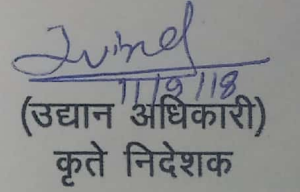 11/9/18
(उद्यान अधिकारी)
कृते निदेशक